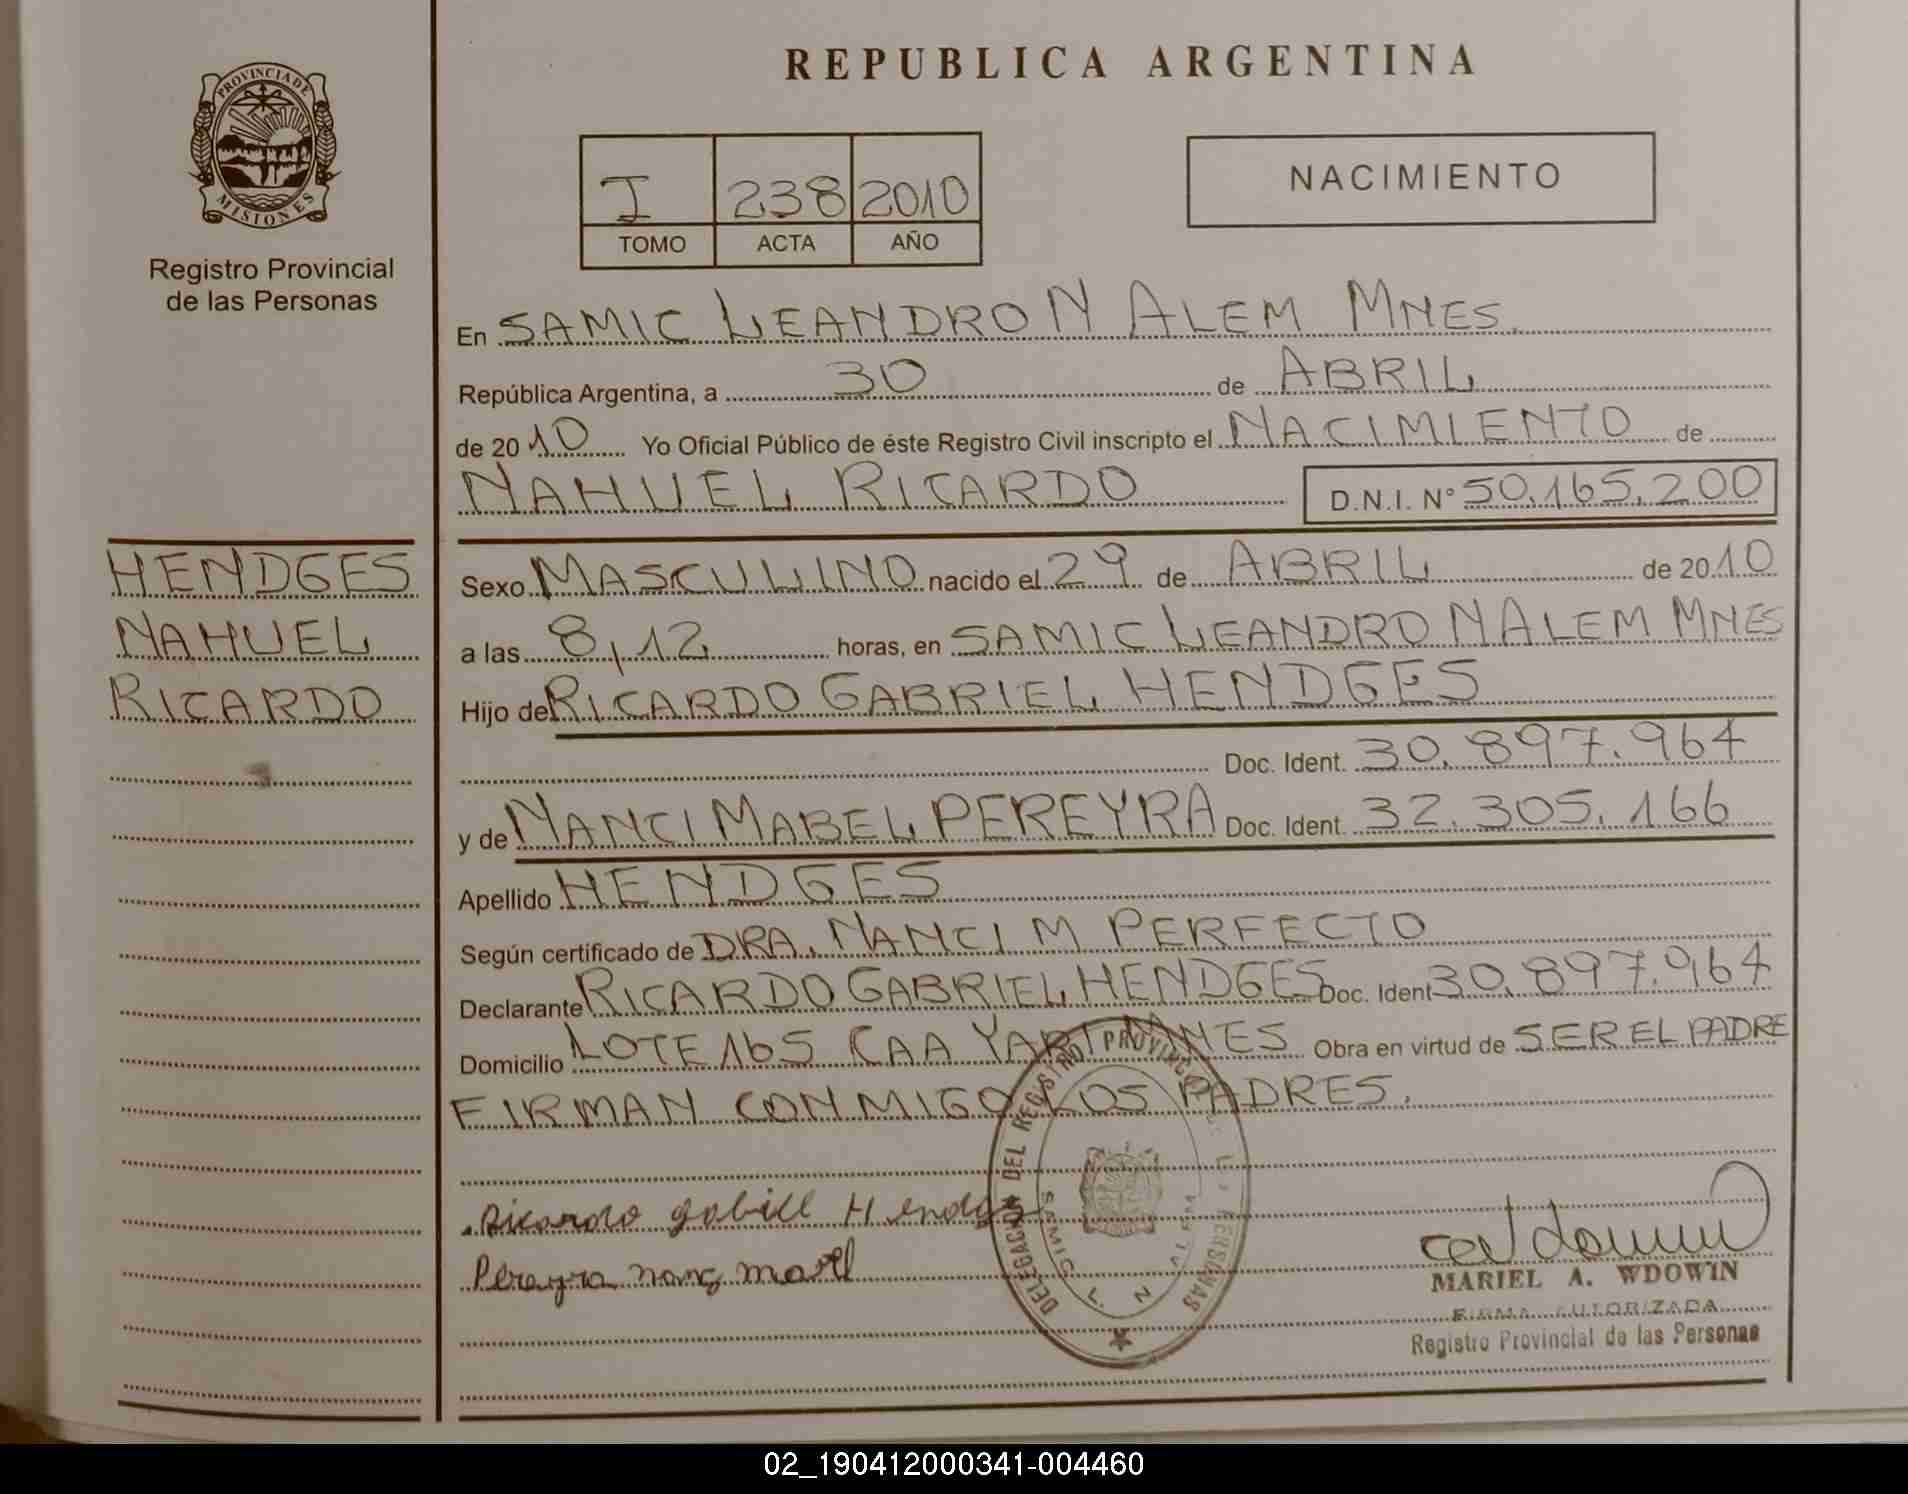 PROVINCIA DE
MISIONES
Registro Provincial
de las Personas
HENDGES
NAHUEL
RICARDO
REPUBLICA ARGENTINA
I 238 2010
TOMO ACTA AÑO
NACIMIENTO
En SAMIC LEANDRO N ALEM MNES.
República Argentina, a 30 de ABRIL
de 2010 Yo Oficial Público de éste Registro Civil inscripto el NACIMIENTO de
NAHUEL RICARDO D.N.I. N° 50.165.200
Sexo MASCULINO nacido el 29 de ABRIL de 2010
a las 8,12 horas, en SAMIC LEANDRO N ALEM MNES
Hijo de RICARDO GABRIEL HENDGES
Doc. Ident. 30.897.964
y de NANCI MABEL PEREYRA Doc. Ident. 32.305.166
Apellido HENDGES
Según certificado de DRA. NANCI M PERFECTO
Declarante RICARDO GABRIEL HENDGES Doc. Ident 30.897.964
Domicilio LOTE 165 CAA YARI MNES Obra en virtud de SER EL PADRE
FIRMAN CONMIGO LOS PADRES.
DELEGACION DEL REGISTRO PROVINCIAL DE LAS PERSONAS
SAMIC L. N. ALEM
Ricardo gabriel Hendges
Pereyra
MARIEL A. WDOWIN
FIRMA AUTORIZADA
Registro Provincial de las Personas
02_190412000341-004460